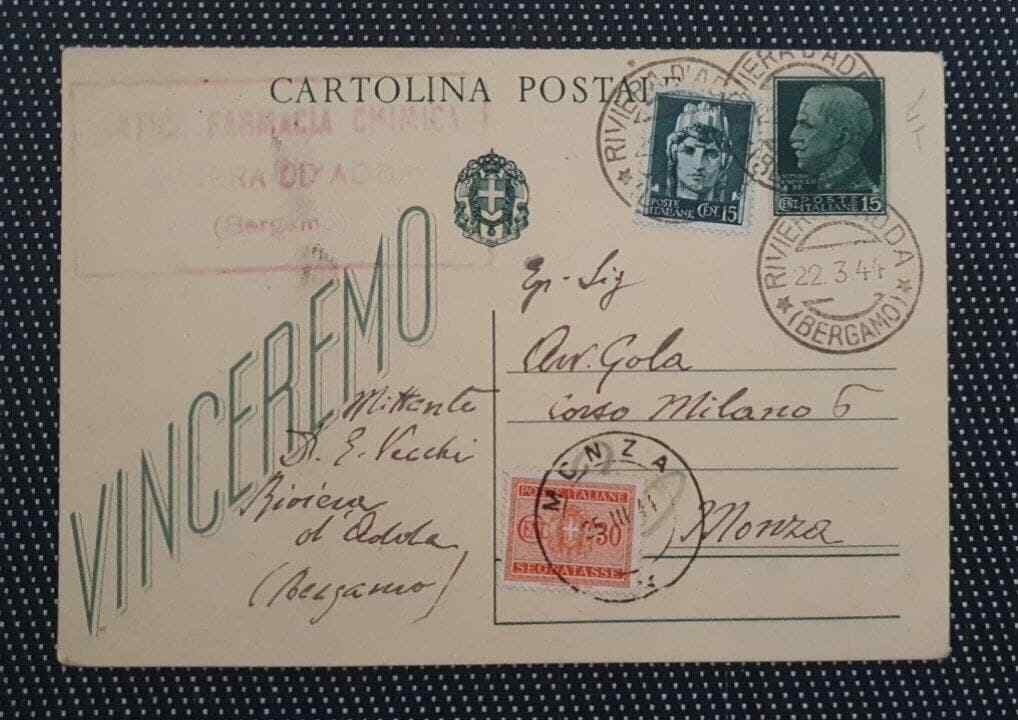 CARTOLINA POSTALE
FARMACIA CHIMICA
(Bergamo)
RIVIERA D'ADDA
POSTE
ITALIANE CENT 15
CENT POSTE
ITALIANE 15
RIVIERA D'ADDA
22.3.44
(BERGAMO)
VINCEREMO
Eg. Sig
Avv. Gola
Corso Milano 6
Monza
Mittente
Dr. E. Vecchi
Riviera
d'Adda
(Bergamo)
MONZA
III
POSTE ITALIANE
CENT 30
SEGNATASSE